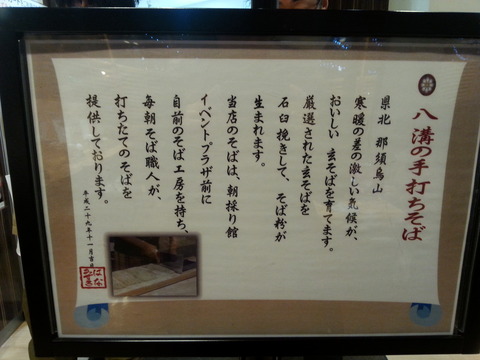 八溝の手打ちそば
県北 那須烏山
寒暖の差の激しい気候が、
おいしい 玄そばを育てます。
厳選された玄そばを
石臼挽きして、そば粉が
生まれます。
当店のそばは、朝採り館
イベントプラザ前に
自前のそば工房を持ち、
毎朝そば職人が、
打ちたてのそばを
提供しております。
平成二十九年十一月吉日